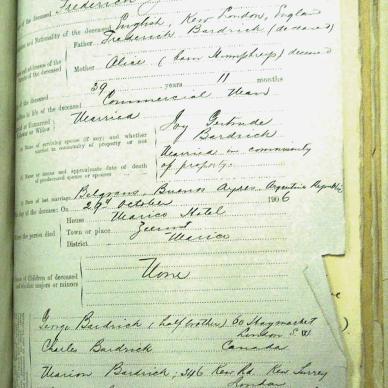 Frederick
of the deceased
and Nationality of the deceased English, Kew London, England
Father Frederick Bardrick (deceased)
Mother Alice (born Humphreys) deceased
of the deceased
39 years 11 months
in life of the deceased Commercial Man
Married
Joy Gertrude
Bardrick
Name of surviving spouse (if any) and whether
married in community of property or not
Married in community
of property.
Name or names and approximate date of death
of predeceased spouse or spouses
Place of last marriage Belgrano, Buenos Ayres, Argentine Republic
day of the decease: On 29th October 1906
House Marico Hotel
Where the person died
Town or place Zeerust
District Marico
Names of Children of deceased
and whether majors or minors
None
George Bardrick (half brother) 60 Haymarket
London S.W.
Charles Bardrick Canada
Marion Bardrick; 346 Kew Rd. Kew Surrey
London